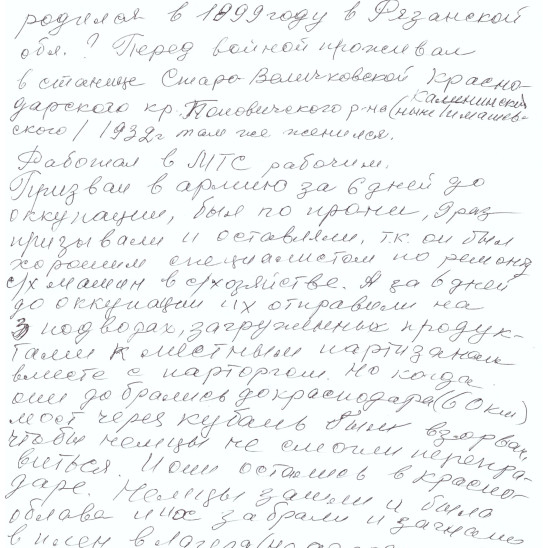 родился в 1899 году в Рязанской
обл. ? Перед войной проживал
в станице Старо Величковской Красно-
дарского кр. Поповичского р-на (ныне Тимашев-
Калининский
ского) 1932г там же женился.
Работал в МТС рабочим.
Призван в армию за 6 дней до
оккупации, был по брони, раз
призывали и оставляли, т.к. он был
хорошим специалистом по ремонту
с/х машин в с/хозяйстве. А за 6 дней
до оккупации их отправили на
3 подводах, загруженных продук-
тами к местным партизанам
вместе с парторгом. Но когда
они добрались до Краснодара (60км)
мост через Кубань был взорван,
чтобы немцы не смогли перепра-
виться. И они остались в Красно-
даре. Немцы зашли и была
облава и их забрали и загнали
в плен в лагерь